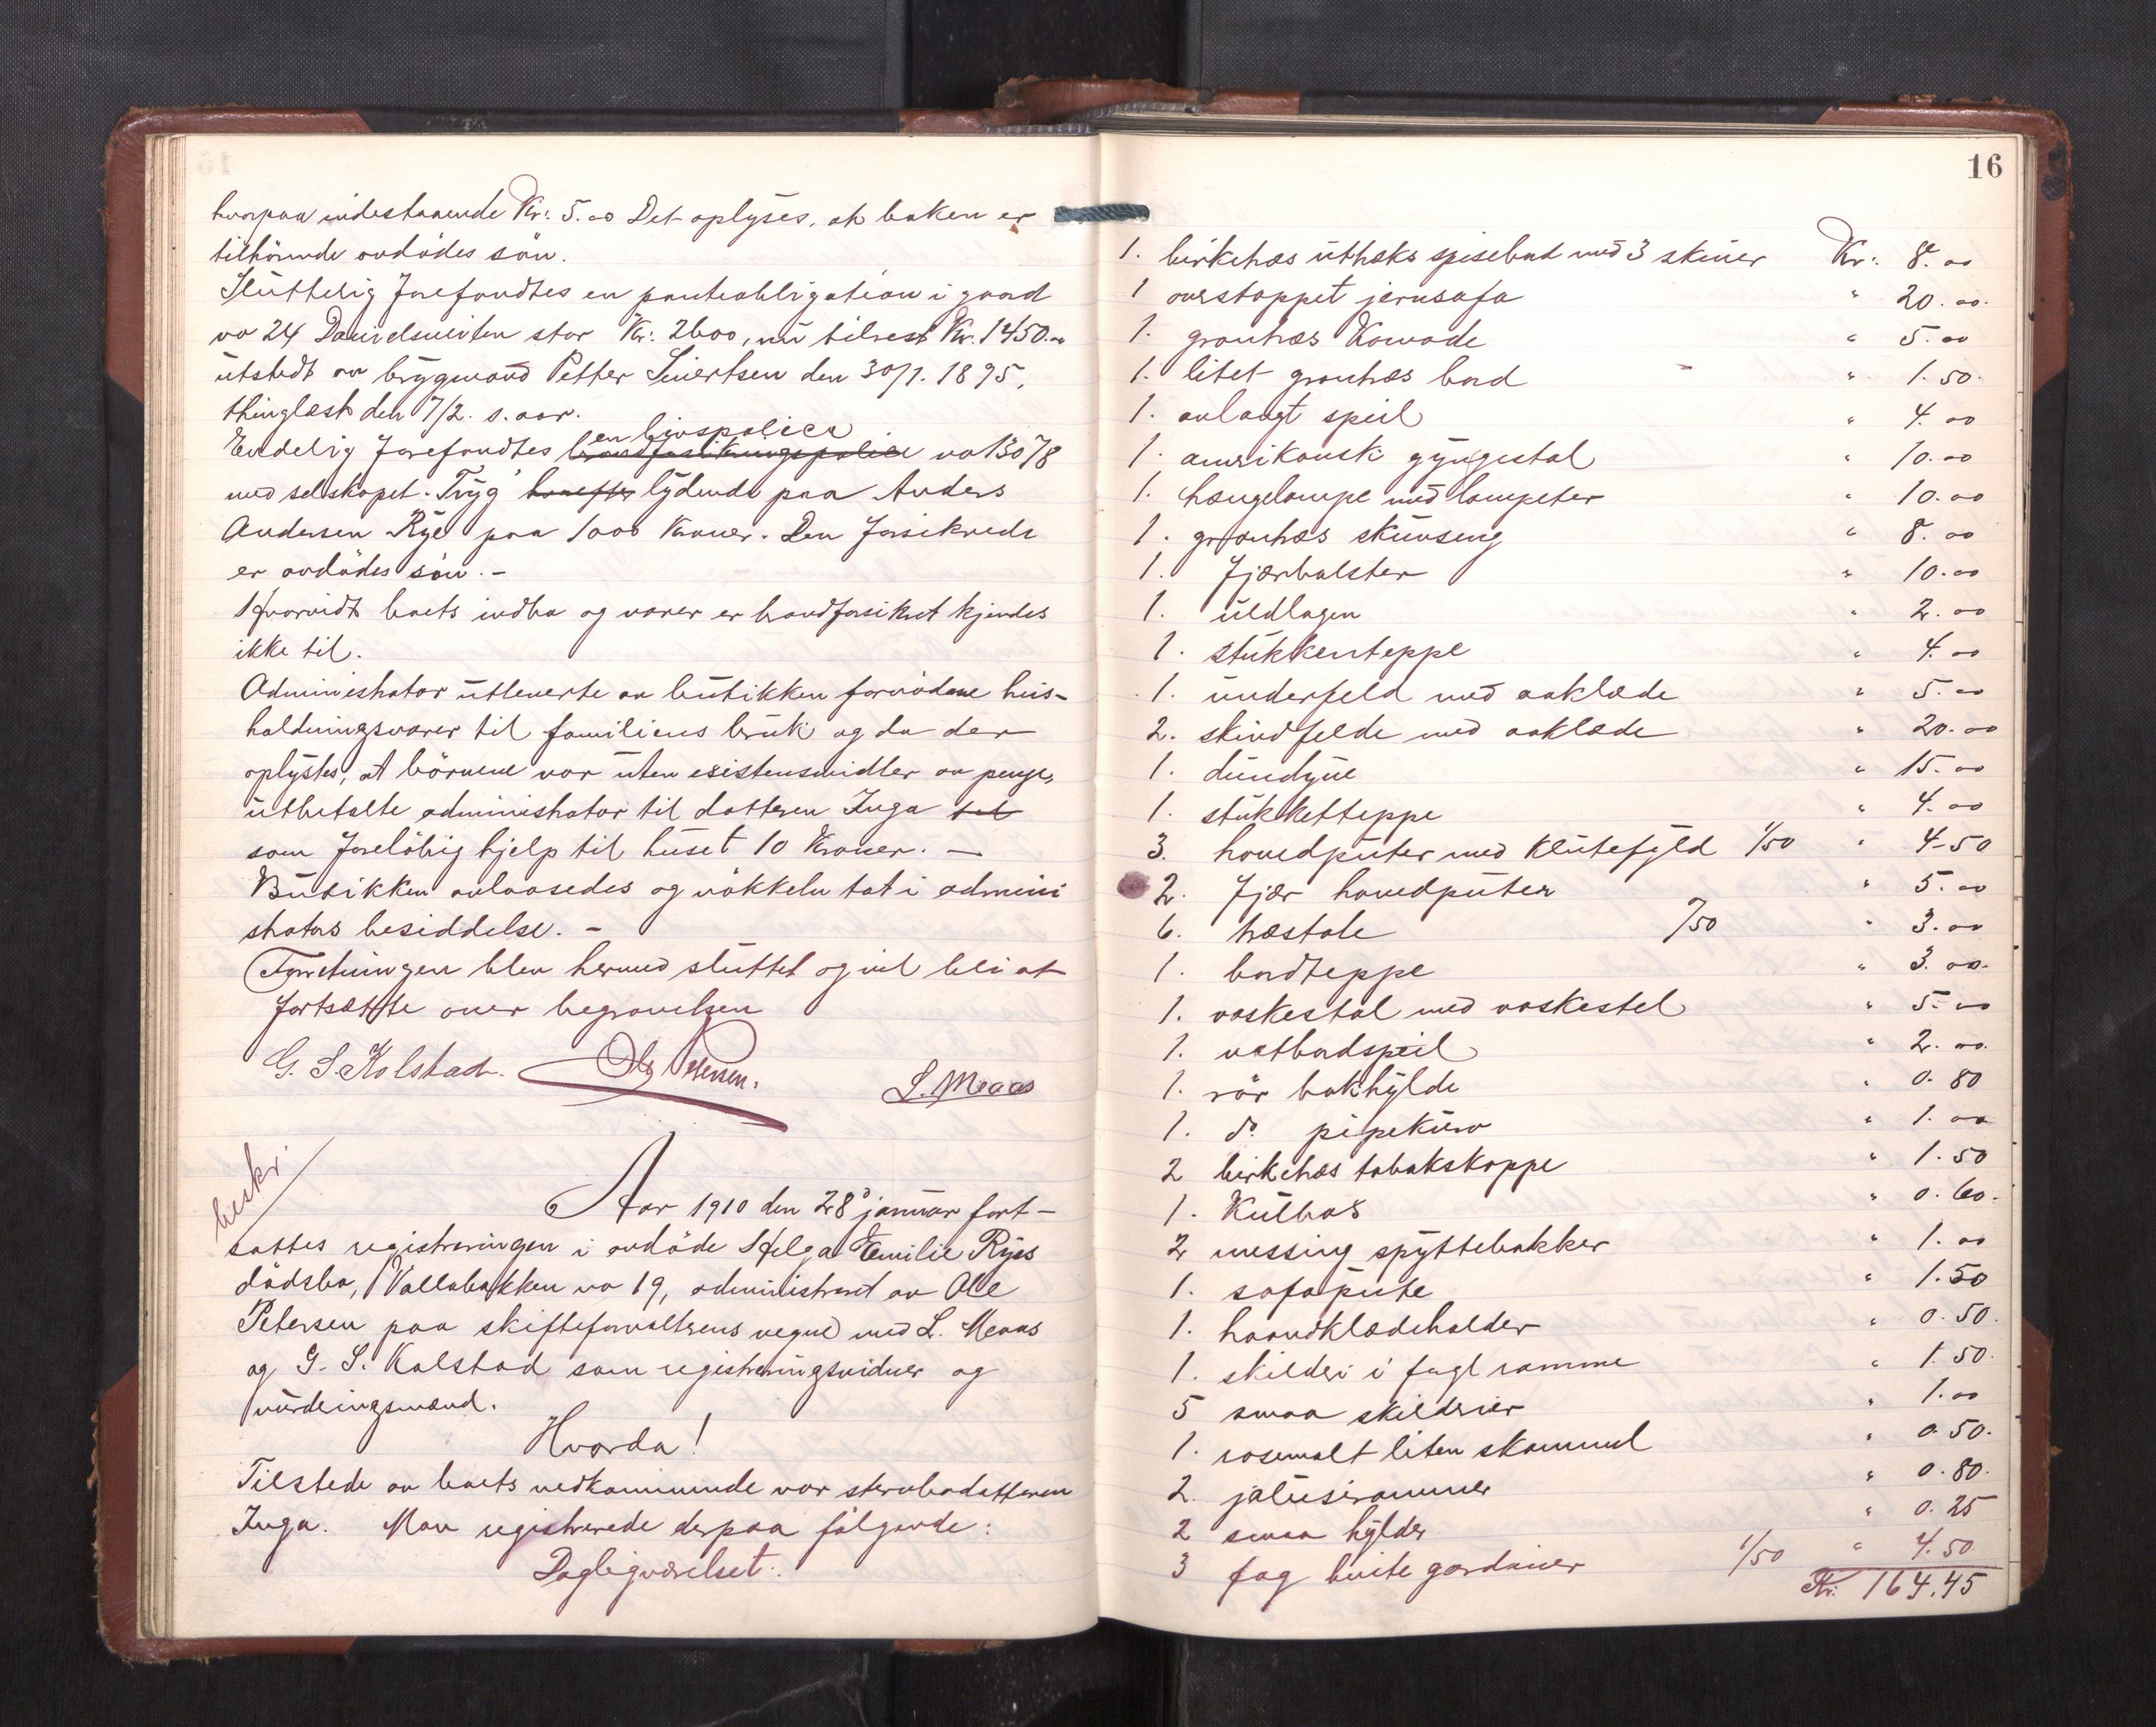 hvorpaa indestaaende Kr: 5.00 Det oplyses, at boken er
tilhörende avdödes sön.
Sluttelig forefandtes en panteobligation i gaard
no 24 Danielsveiten stor Kr: 2600, nu tilrest Kr. 1450.00
utstedt av brygmand Petter Sivertsen den 30/1. 1895,
thinglæst den 7/2. s. aar.
en livspolice
Endelig forefandtes brandforsikringspolice no 13078
med selskapet "Tryg" lydende paa Anders
Andersen Rye paa 1000 Kroner. Den forsikrede
er avdödes sön. -
Hvorvidt boets indbo og varer er brandforsikret kjendes
ikke til.
Administrator utleverte av butikken fornödene hus-
holdningsvarer til familiens bruk og da der
oplystes, at börnene var uten existensmidler av penge,
utbetalte administrator til datteren Inga til
som foreløbig hjelp til huset 10 Kroner. -
Butikken avlaasedes og nökkeln tat i admini
strators besiddelse. -
Forretningen blev hermed sluttet og vil bli at
fortsætte over begravelsen
G. S. Kolstad. Ole Petersen. L. Meaas
beskr.
Aar 1910 den 28d januar fort-
sattes registreringen i avdöde Helga Emilie Ryes
dödsbo, Vollabakken no 19, administrert av Ole
Petersen paa skifteforvalterens vegne med L. Meaas
og G. S. Kolstad som registreringsvidner og
vurderingsmænd.
Hvorda!
Tilstede av boets vedkommende var stervbodatteren
Inga. Man registrerede derpaa fölgende:
Dagligværelset:
16
1. birketræs uttræks spisebord med 3 skiver Kr: 8.00
1 overstoppet jernsofa " 20.00.
1. grantræs Komode " 5.00
1. litet grantræs bord " 1.50.
1. avlangt speil " 4.00
1. amerikansk gyngestol " 10.00
1. hængelampe med lampeter " 10.00
1. grantræs skuvseng " 8.00
1. fjærbolster " 10.00
1. uldlagen " 2.00
1. stukkenteppe " 4.00
1. underfeld med aaklæde " 5.00
2. skindfelde med aaklæde " 20.00
1. dundyne " 15.00
1. stukketteppe " 4.00
3. hovedputer med Klutefyld 1/50 " 4.50
2. fjær hovedputer " 5.00
6. træstole /50 " 3.00
1. bordteppe " 3.00.
1. vaskestol med vaskestel " 5.00
1. natbordspeil " 2.00.
1. rör bokhylde " 0.80
1. do. pipekurv " 1.00
2 birketræs tobakskoppe " 1.50
1. Kulbos " 0.60.
2 messing spyttebakker " 1.00
1. sofapute " 1.50
1. haandklædeholder " 0.50.
1. skilderi i fugl ramme " 1.50.
5 smaa skilderier " 1.00
1. rosemalt liten skammel " 0.50.
2. jalusirammer " 0.80.
2 smaa hylder " 0.25
3 fag hvite gardiner 1/50 " 4.50
Kr. 164.45